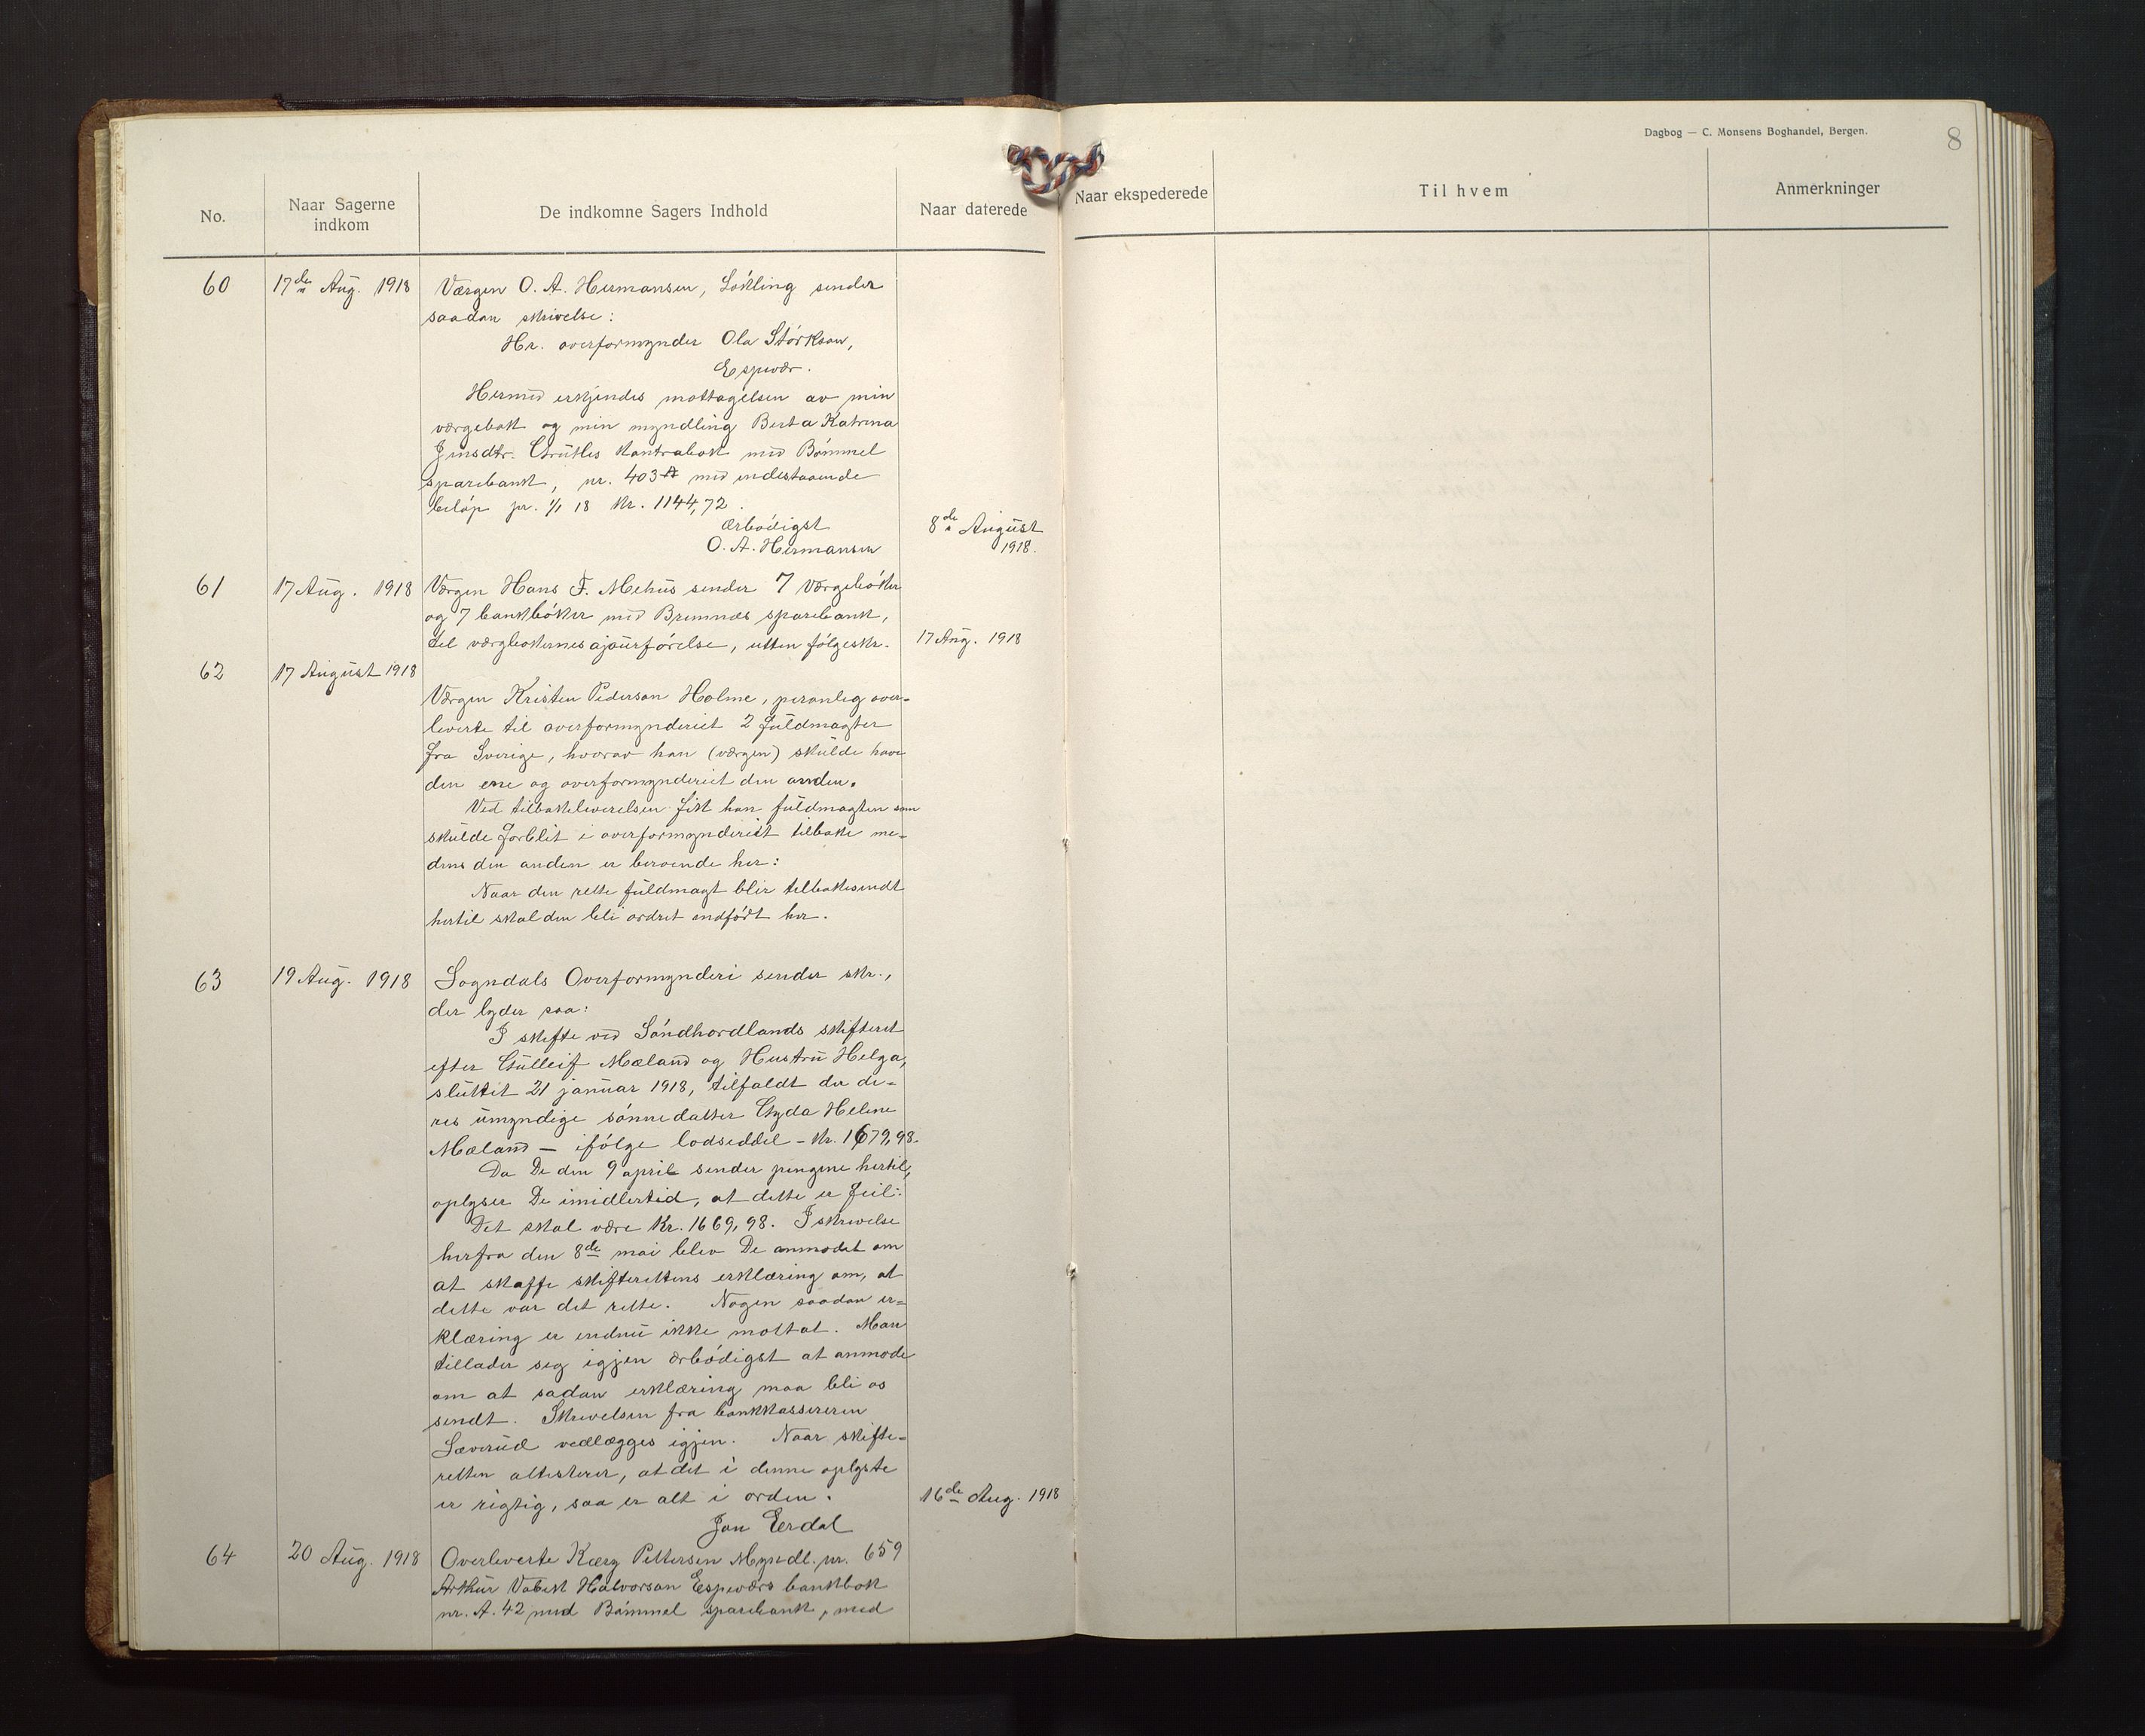 Dagbog — C. Monsens Boghandel, Bergen.
8
No.
Naar Sagerne indkom
De indkomne Sagers Indhold
Naar daterede
Naar ekspederede
Til hvem
Anmerkninger
60 17de Aug. 1918 Værgen O. A. Hermansen, Løkling sender
saadan skrivelse:
Hr. overformynder Ola Størkson,
Espevær.
Hermed erkjendes mottagelsen av min
værgebok og min myndling Berta Katrina
Jensdtr. Grutles kontrabok med Bømmel
sparebank, nr. 403 A med indestaaende
beløp pr. 1/1 18 kr. 1144,72.
Ærbødigst
O. A. Hermansen
8de August
1918.
61 17 Aug. 1918 Værgen Hans F. Mehus sender 7 værgebøker
og 7 bankbøker med Bremnes sparebank,
til værgbokernes ajourførelse, utten følgeskr. 17 Aug. 1918
62 17 August 1918
Værgen Kristen Pederson Holme, personlig over-
leverte til overformynderiet 2 fuldmagter
fra Sverige, hvorav han (værgen) skulde have
den ene og overformynderiet den anden.
Ved tilbakeleverelsen fik han fuldmagten som
skulde forblit i overformynderiet tilbake me-
dens den anden er beroende her:
Naar den rette fuldmagt blir tilbakesendt
hertil skal den bli ordret indført her.
63 19 Aug. 1918 Sogndals Overformynderi sender skr.,
der lyder saa:
I skifte ved Søndhordlands skifteret
efter Gulleif Mæland og Hustru Helga,
sluttet 21 januar 1918, tilfaldt der de-
res umyndige sønnedatter Gyda Helene
Mæland — ifølge lodseddel - kr. 1679,98.
Da De den 9 april sender pengene hertil,
oplyser De imidlertid, at dette er feil:
Det skal være Kr. 1669,98. I skrivelse
herfra den 8de mai blev De anmodet om
at skaffe skifterettens erklæring om, at
dette var det rette. Nogen saadan er-
klæring er endnu ikke mottat. Man
tillader seg igjen ærbødigst at anmode
om at sadan erklæring maa bli os
sendt. Skrivelsen fra bankkassereren
Sæverud vedlægges igjen. Naar skifte-
retten attesterer, at det i denne oplyste
er rigtig, saa er alt i orden.
16de Aug. 1918
Jan Eerdal
64 20 Aug. 1918 Overleverte Kærz Pettersen Myndl. nr. 659
Arthur Halvorsan Espeværs bankbok
nr. A. 42 med Bømmel sparebank, med